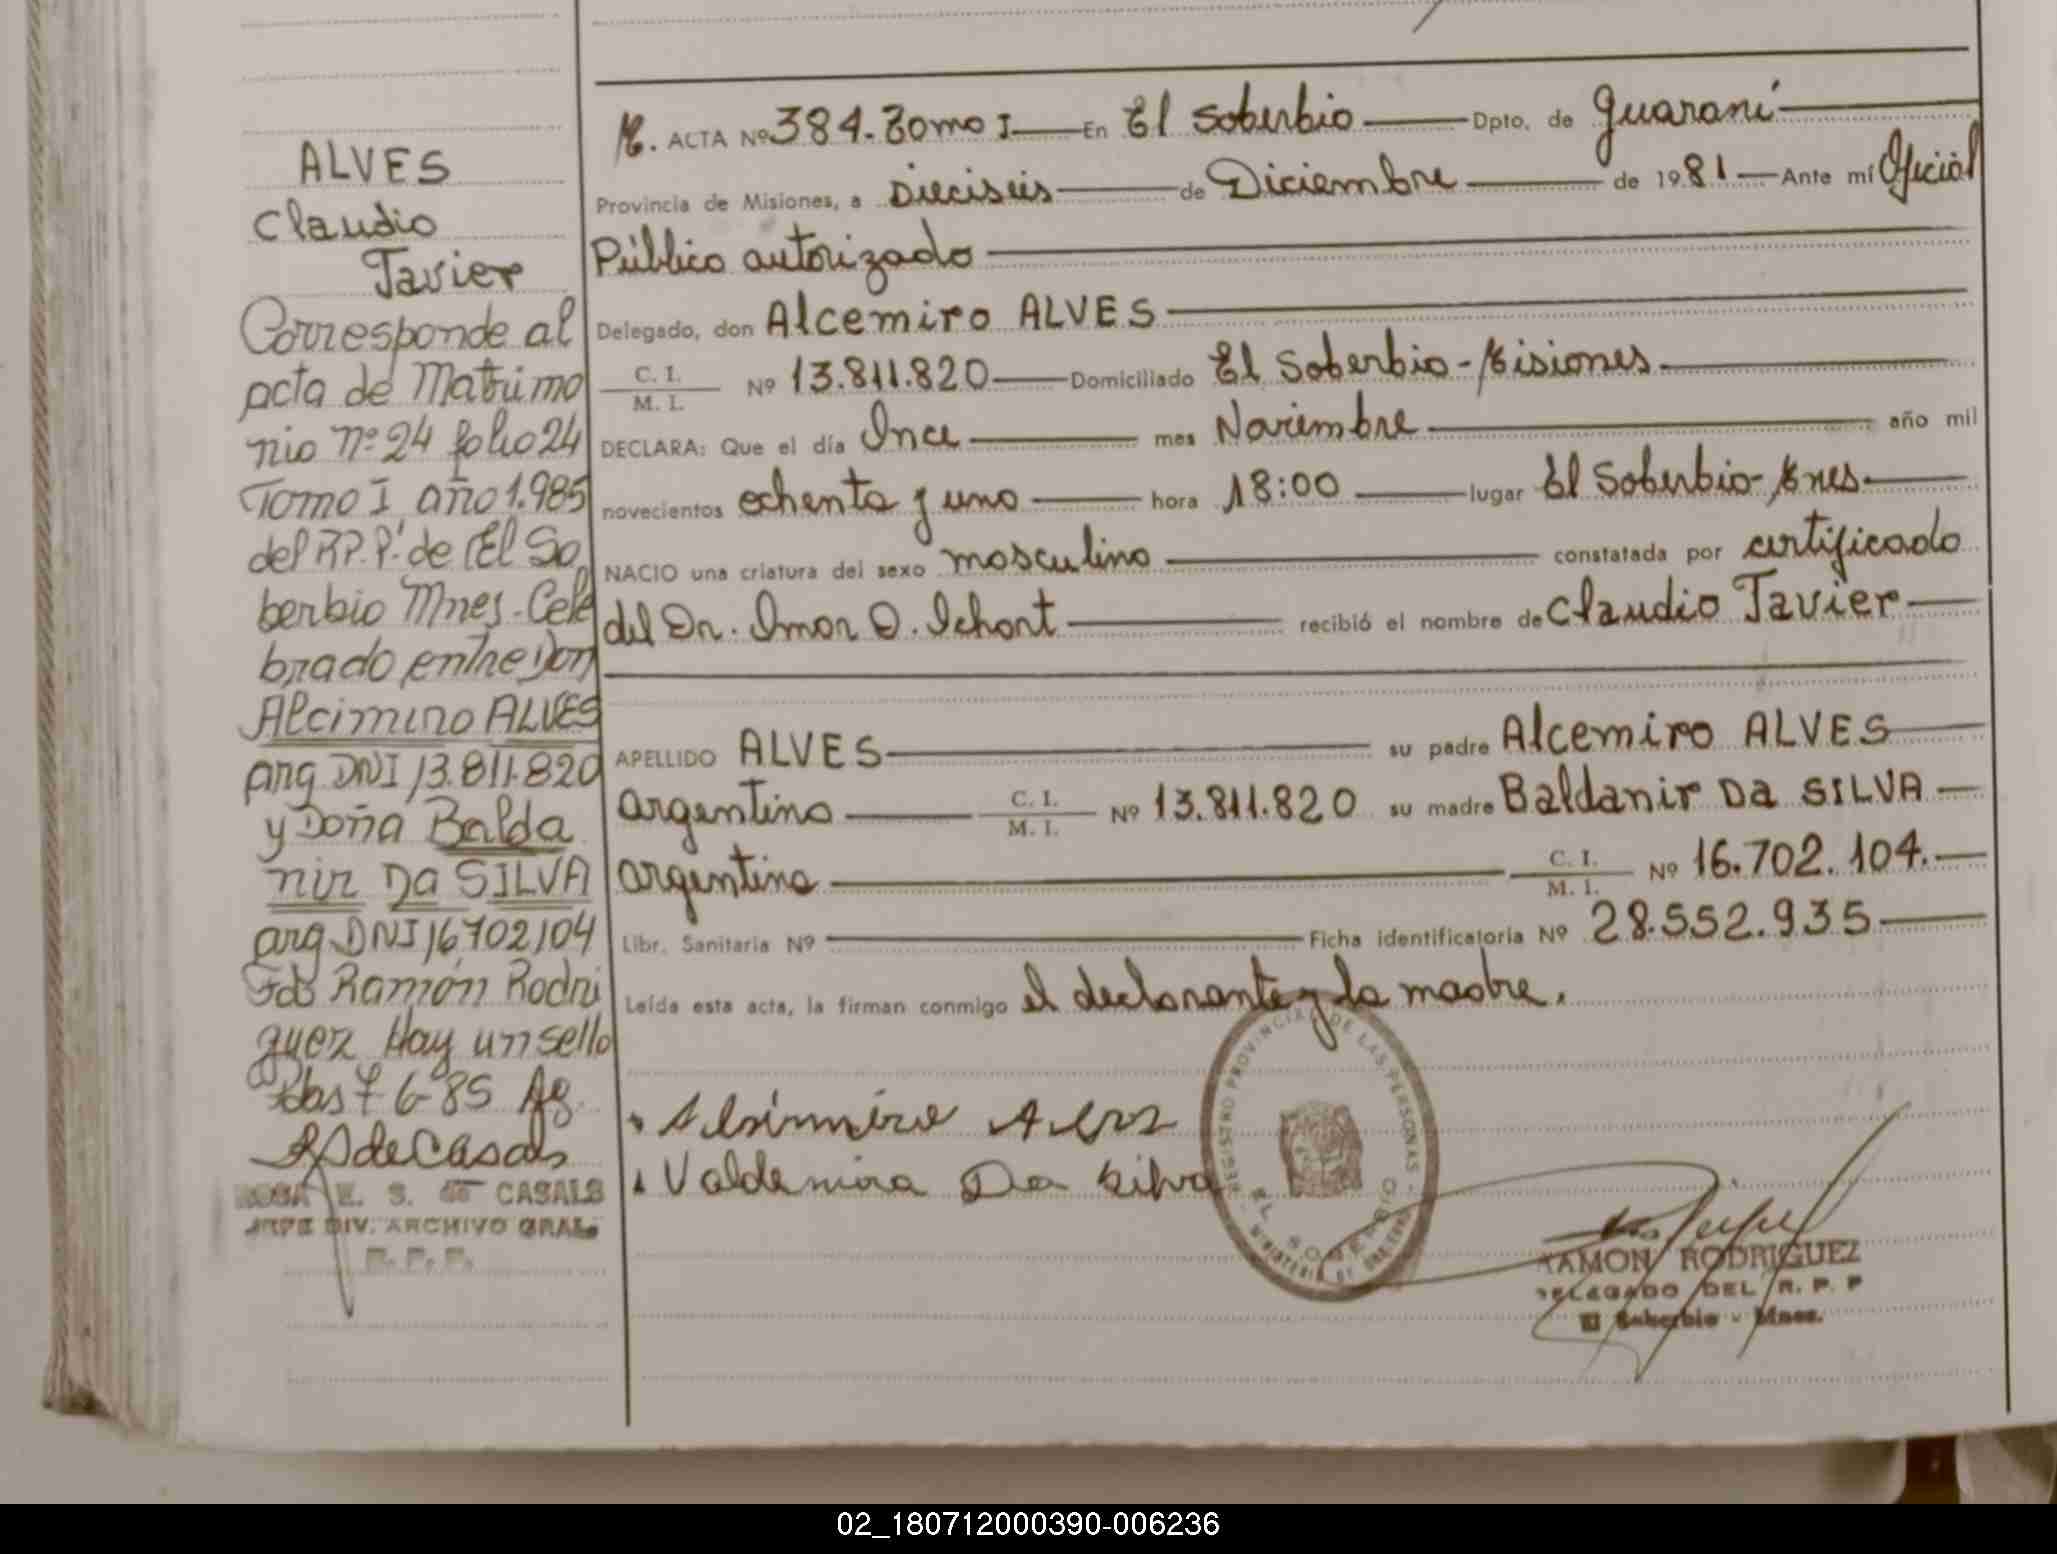 ALVES
Claudio
Javier
Corresponde al
acta de Matrimo
nio Nº 24 folio 24
Tomo I año 1.985
del R.P.P. de El So
berbio Mnes. Cele
brado entre Don
Alcimiro ALVES
arg DNI 13.811.820
y Doña Balda
nir Da SILVA
arg DNI 16.702104
Fdo Ramón Rodri
guez Hay un sello
Pdas 7-6-85
de Casals
ROSA E. S. de CASALS
JEFE DIV. ARCHIVO GRAL.
R. P. P.
ACTA Nº 384. Tomo I En El Soberbio Dpto. de Guaraní
Provincia de Misiones, a Dieciseis de Diciembre de 1981 Ante mí Oficial
Público autorizado
Delegado, don Alcemiro ALVES
C. I.
M. I.
Nº 13.811.820 Domiciliado El Soberbio - Misiones
DECLARA: Que el día Once mes Noviembre año mil
novecientos ochenta y uno hora 18:00 lugar El Soberbio - Mnes
NACIO una criatura del sexo masculino constatada por certificado
del Dr. Omar O. recibió el nombre de Claudio Javier
APELLIDO ALVES su padre Alcemiro ALVES
argentino C. I. M. I. Nº 13.811.820 su madre Baldanir Da SILVA
argentina C. I. M. I. Nº 16.702.104.
Libr. Sanitaria Nº Ficha identificatoria Nº 28.552.935
Leída esta acta, la firman conmigo el declarante y la madre.
Valdemira Da Silva
REGISTRO PROVINCIAL DE LAS PERSONAS
EL SOBERBIO
MINISTERIO DE GOBIERNO
RAMON RODRIGUEZ
DELEGADO DEL R. P. P
El Soberbio - Mnes.
02_180712000390-006236